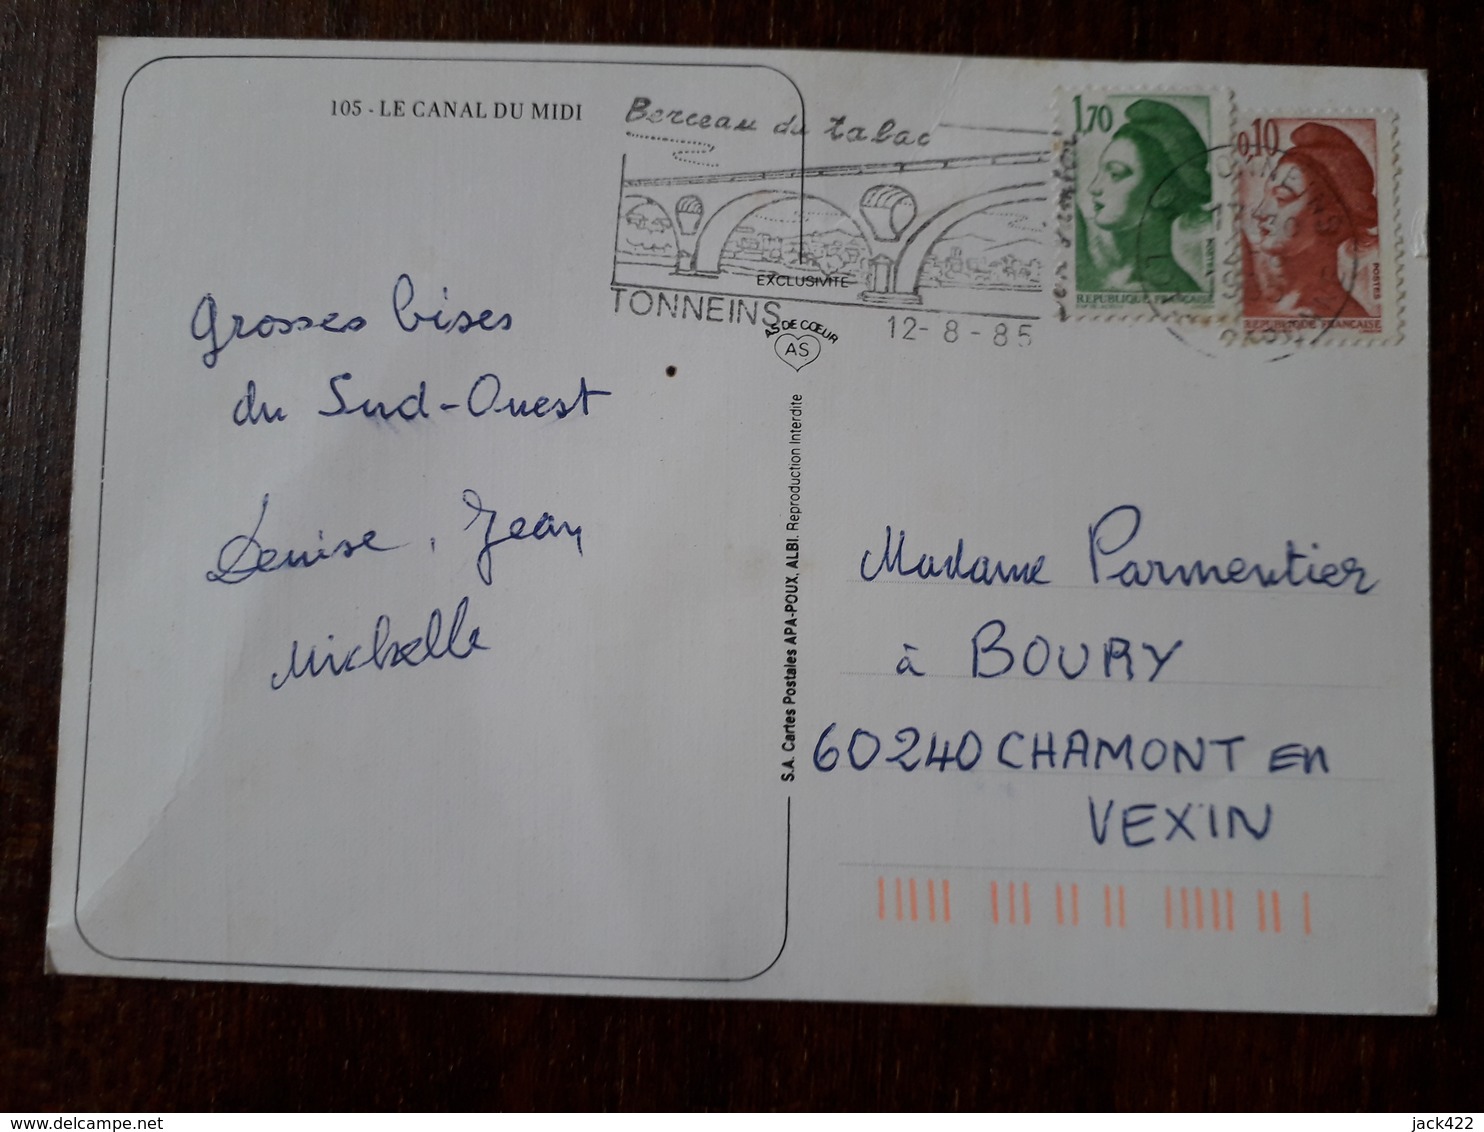 105 - LE CANAL DU MIDI
Berceau du tabac
TONNEINS
12-8-85
1,70
REPUBLIQUE FRANÇAISE
0,10
POSTES
REPUBLIQUE FRANÇAISE
TONNEINS
EXCLUSIVITÉ
AS DE CŒUR
AS
S.A. Cartes Postales APA-POUX. ALBI. Reproduction Interdite
Grosses bises
du Sud-Ouest
Denise, Jean
Michelle
Madame Parmentier
à BOURY
60240 CHAMONT En
VEXIN
https://www.delcampe.net
jack422